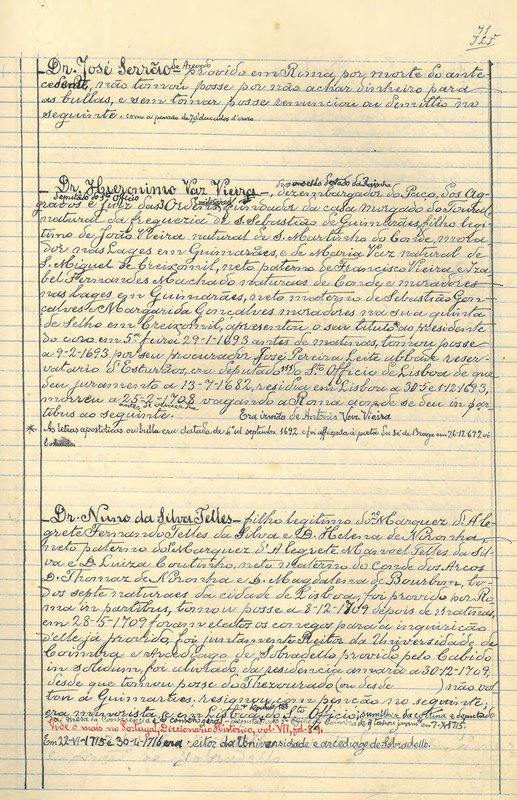 71
325
Dr. José Serrão de Azevedo - provido em Roma por morte do ante-
cedente, não tomou posse por não achar dinheiro para
as bullas, e sem tomar posse renunciou ao demitto no
seguinte. com a pensão de 70 ducados d'ouro
Dr. Hieronimo Vaz Vieira -, do conselho d'estado da Rainha, desembargador do Paço, dos Ag-
gravos e deputado do Sto Officio juiz das Ordens, da casa morgado do Toural,
natural da freguezia de S. Sebastião de Guimarães, filho legi-
timo de João Vieira natural de S. Martinho do Conde, mora-
dor nas Lages em Guimarães, e de Maria Vaz natural de
S. Miguel de Creixomil, neto paterno de Francisco Vieira e Iza-
bel Fernandes Machado naturaes de Conde e moradores
nas Lages em Guimarães, neto materno de Sebastião Gon-
çalves e Margarida Gonçalves moradores na sua quinta
de Selho em Creixomil, apresentou o seu titulo ao presidente
do coro em 5ª feira 29-1-1693 antes de matinas, tomou posse
a 9-2-1693 por seu procurador José Pereira Leite abbade reser-
vatario d'Esturãos, era deputado do Sto Officio de Lisboa de que
deu juramento a 13-7-1682, residia em Lisboa a 30-5 e 1-12-1693,
morreu a 25-2-1708 vagando a Roma aonde se deu in par-
tibus ao seguinte. Era irmão de Antonio Vaz Vieira
* As letras apostolicas ou bulla era datada de 6 id. septembr. 1692 e foi affixada á porta da Sé de Braga em 26-12-692
Dr. Nuno da Silva Telles - filho legitimo do Marquez d'Ale-
grete Fernando Telles da Silva e D. Helena de Noronha,
neto paterno do Marquez d'Alegrete Manoel Telles da Sil-
va e D. Luiza Coutinho, neto materno do Conde dos Arcos
D. Thomaz de Noronha e D. Magdalena de Bourbon, to-
dos septe naturaes da cidade de Lisboa, foi provido por Ro-
ma in partibus, tomou posse a 8-12-1709 depois de matinas,
em 28-5-1709 foram eleitos os conegos para a inquirição
d'elle já provido, foi juntamente Reitor da Universidade de
Coimbra e Arcediago de Sobradello provido pelo Cabido
in solidum, foi alistado da residencia a 30-12-1709,
desde que tomou posse do Thezourado (ou desde ) não vol-
tou a Guimarães, resignou com penção no seguinte,
era em Lisboa do Sto Officio, sumilher da cortina e deputado
da Meza da Consciencia e do conselho geral em 7-X-1715.
Vide o mais no Portugal, Diccionario Historico, vol. VII, fol. 84.
Em 22-VI-1715 e 30-4-1716 era reitor da Universidade e arcediago de Sobradello.